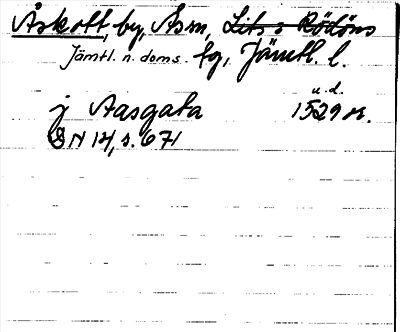 Åskott, by, Ås sn, Lits o Rödöns
Jämtl. n. doms. tg, Jämtl. l.
u.d.
j Aasgata 1529 or.
SN 14, s. 671